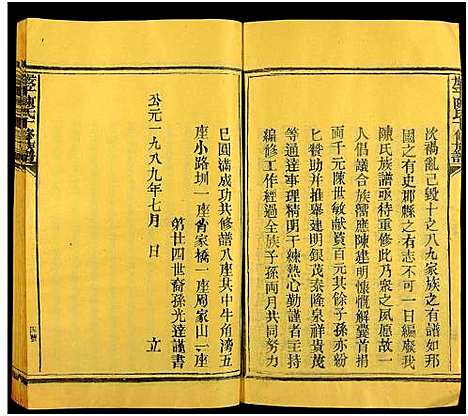 沈禍亂已毀十之八九家族之有譜如邦
國之有史郡縣之有志不可一日編廢我
陳氏族譜亟待重修此乃衆之夙愿故一
人倡議合族濡應陳建明慷慨解囊首捐
两千元陳世敏献貲百元其餘子孫亦紛
匕贊助并推舉建明銀茂泰隆泉祥貴茂
等通達事理精明干練熱心勤謹者主持
工作經過全族子孫两月共同努力
已圓滿成功共修譜八座其中牛角澇五
座小路圳一座肖家橋一座周家山一座
第廿四世裔孫光達謹書
公元一九八九年七月 日 立